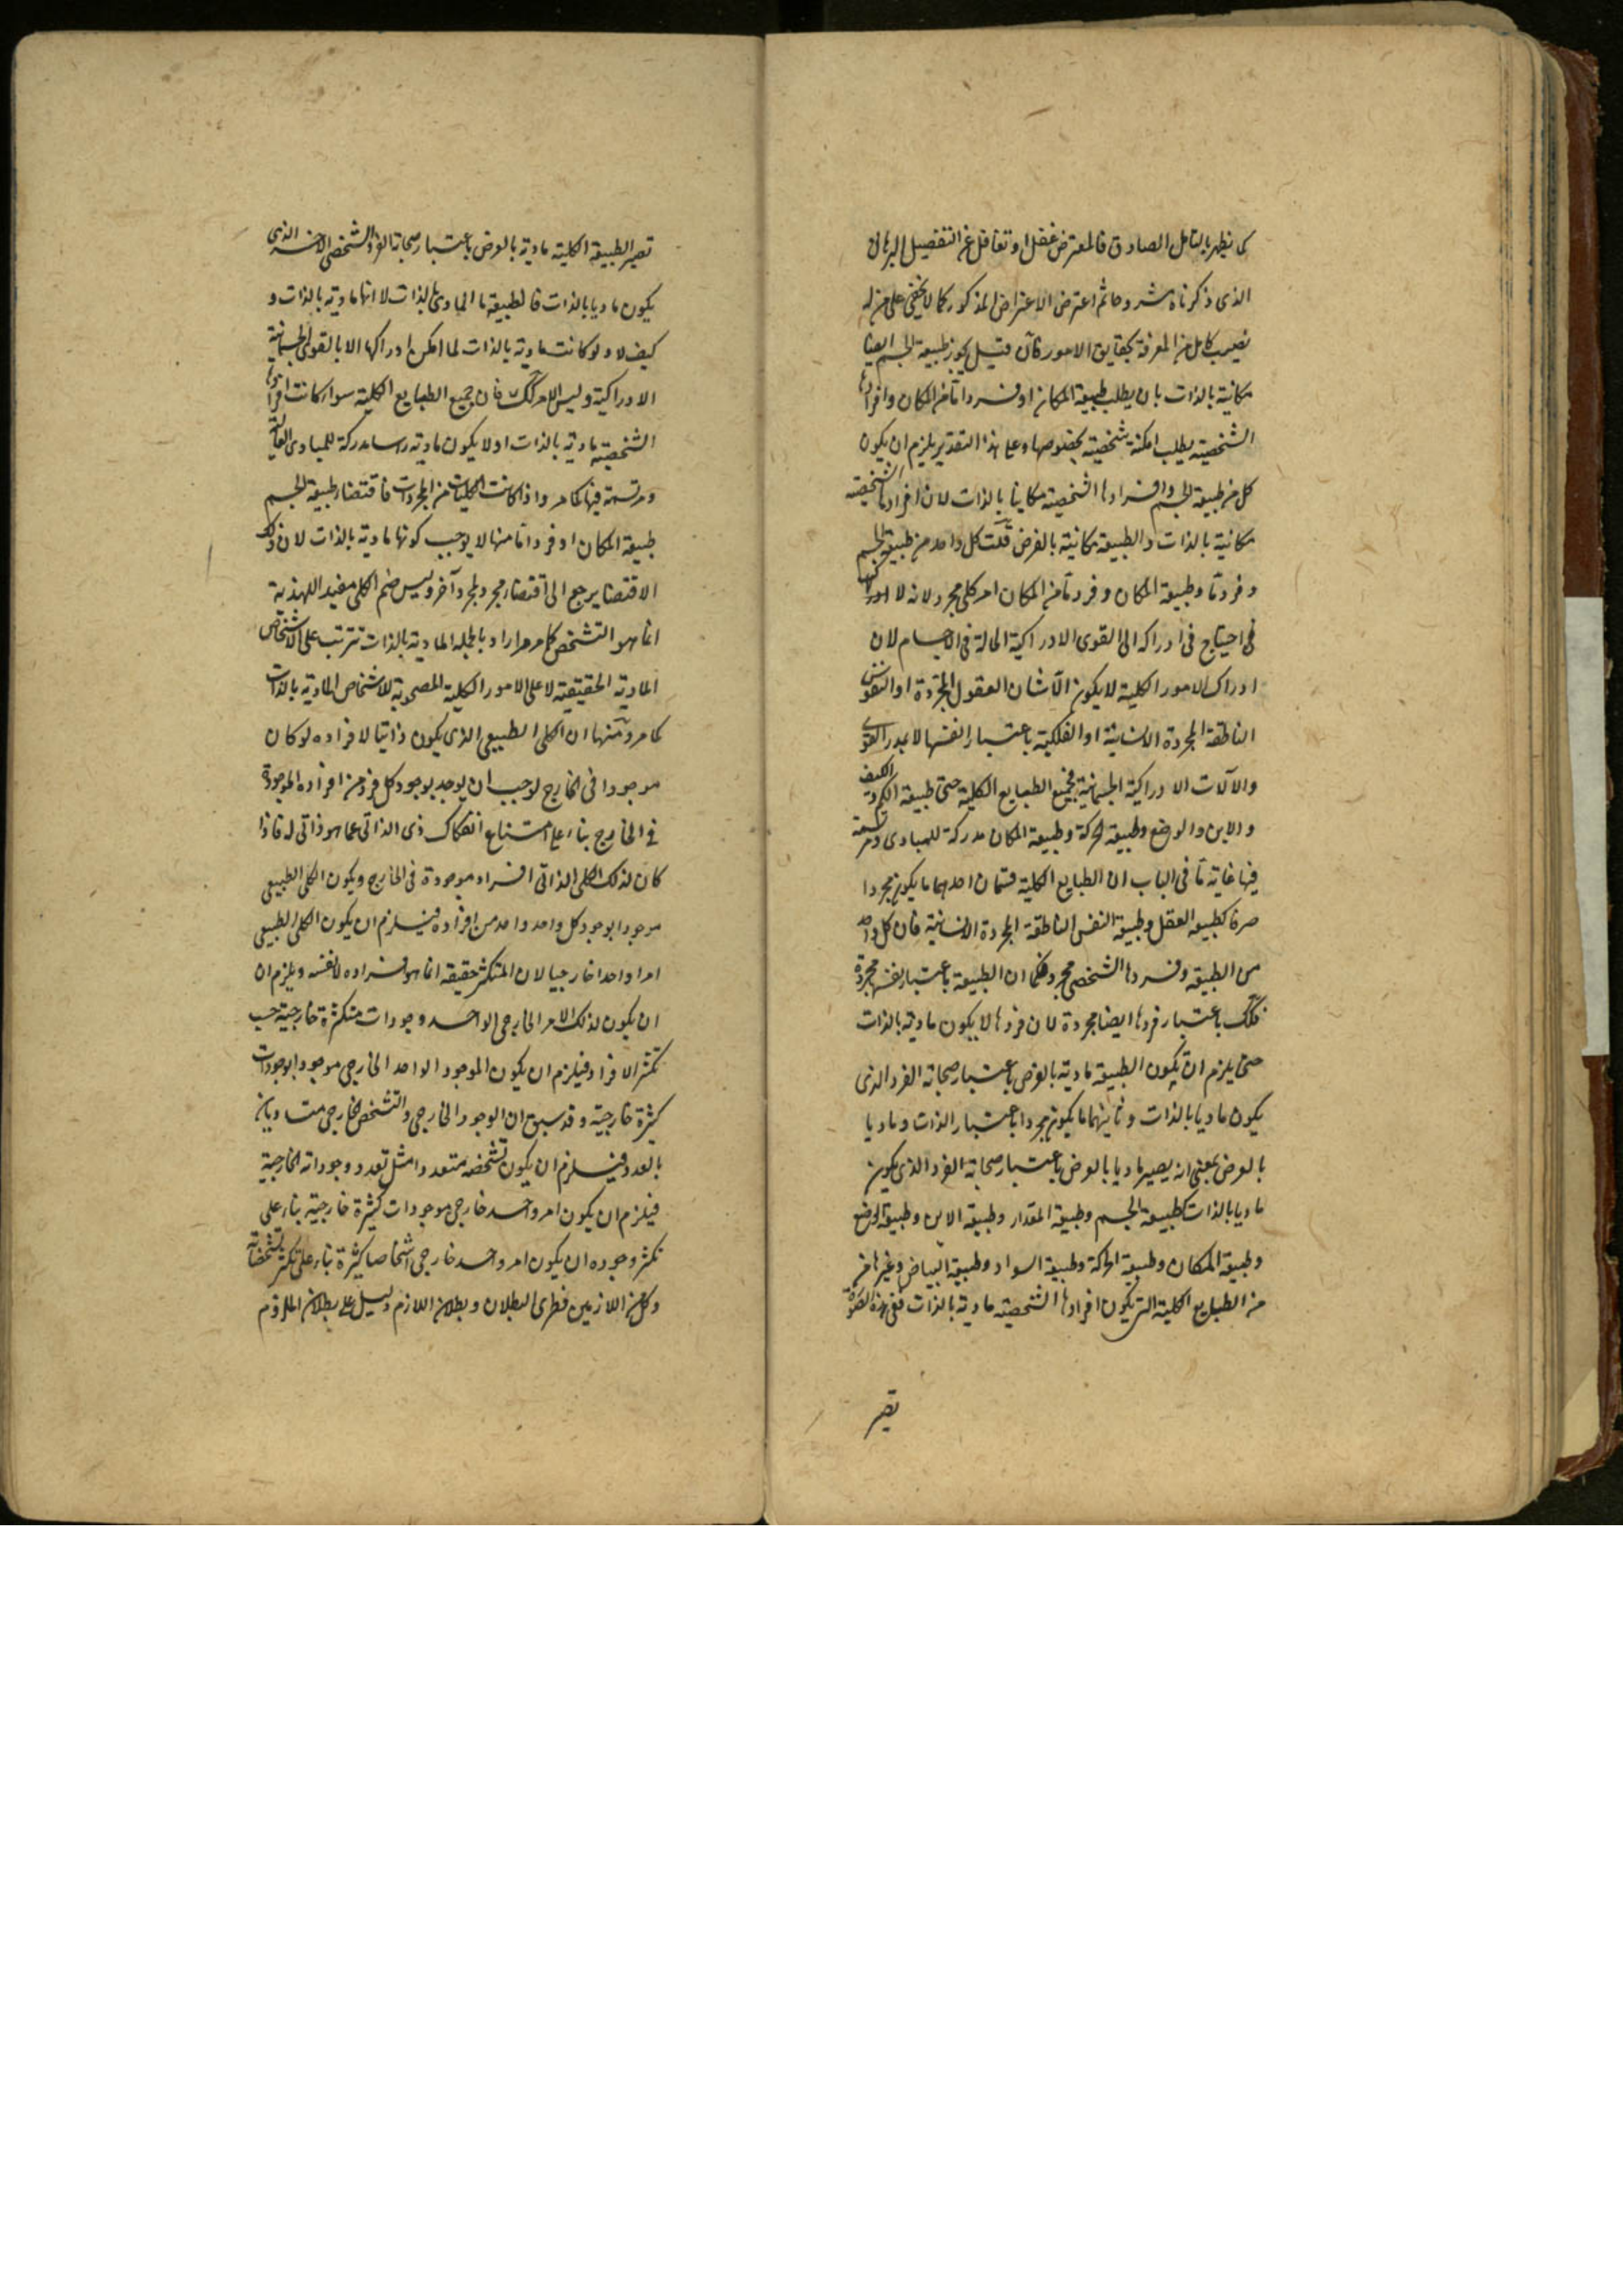 كما يظهر بالتأمل الصادق فالمعترض غفل او تغافل عن التفصيل البرهان
الذى ذكرناه مشروحا ثم اعترض الاعتراض المذكور كما لا يخفى على من له
نصيب كامل من المعرفة بحقايق الامور فان قيل يجوز طبيعة الجسم ايضا
مكانية بالذات بان يطلب طبيعة المكان او فردا ما من المكان وافرادها
الشخصية يطلب امكنة شخصية بخصوصها وعلى هذا التقدير يلزم ان يكون
كل من طبيعة الجسم وافرادها الشخصية مكانيا بالذات لا ان افرادها الشخصية
مكانية بالذات والطبيعة مكانية بالعرض قلت كل واحد من طبيعة الجسم
وفرد ما وطبيعة المكان وفرد ما من المكان امر كلى مجرد لانه لا
فى احتياج فى ادراكه الى القوى الادراكية الحالة فى الاجسام لان
ادراك الامور الكلية لا يكون الا شان العقول المجردة او النفوس
الناطقة المجردة الانسانية او الفلكية باعتبار انفسها لا بمدد القوى
والآلات الادراكية الجسمانية فجميع الطبايع الكلية حتى طبيعة الكم والكيف
والاين والوضع وطبيعة الحركة وطبيعة المكان مدركة للمبادى ومرتسمة
فيها غاية ما فى الباب ان الطبايع الكلية قسمان احدهما ما يكون مجردا
صرفا كطبيعة العقل وطبيعة النفس الناطقة المجردة الانسانية فان كل واحد
من الطبيعة وفردها الشخصى مجرد فكما ان الطبيعة باعتبار نفسها مجردة
فكك باعتبار فردها ايضا مجردة لان فردها لا يكون مادية بالذات
حتى يلزم ان يكون الطبيعة مادية بالعرض باعتبار صحابة الفرد الذى
يكون ماديا بالذات وثانيهما ما يكون مجردا باعتبار الذات وماديا
بالعرض بمعنى انه يصير ماديا بالعرض باعتبار صحابة الفرد الذى يكون
ماديا بالذات كطبيعة الجسم وطبيعة المقدار وطبيعة الاين وطبيعة الوضع
وطبيعة المكان وطبيعة الحركة وطبيعة السواد وطبيعة البياض وغيرها من
من الطبايع الكلية التى يكون افرادها الشخصية مادية بالذات ففى هذه الصورة
تصير
تصير الطبيعة الكلية مادية بالعرض باعتبار صحابة الفرد الشخصى الذى
يكون ماديا بالذات فالطبيعة مادى بالذات لا انها مادية بالذات و
كيف لا ولو كانت مادية بالذات لما امكن ادراكها الا بالقوى الجسمانية
الادراكية وليس الامر كك فان جميع الطبايع الكلية سواء كانت افرادها
الشخصية مادية بالذات او لا يكون مادية مدركة للمبادى العالية
ومرتسمة فيها كما مر واذا كانت الكليات من المجردات فاقتضاء طبيعة الجسم
طبيعة المكان او فردا ما منها لا يوجب كونها مادية بالذات لان ذلك
الاقتضا يرجع الى اقتضاء مجرد لمجرد آخر وليس ضم الكلى مفيدا للهذية
انما هو التشخص كما مر مرارا وبالجملة المادية بالذات تترتب على الاشخاص
المادية الحقيقية لا على الامور الكلية المصحوبة للاشخاص المادية بالذات
كما مر ومنها ان الكلى الطبيعى الذى يكون ذاتيا لافراده لو كان
موجودا فى الخارج لوجب ان يوجد بوجود كل فرد من افراده الموجودة
فى الخارج بناء على امتناع انفكاك ذى الذاتى عما هو ذاتى له فاذا
كان لذلك الكلى الذاتى افراد موجودة فى الخارج ويكون الكلى الطبيعى
موجودا بوجود كل واحد واحد من افراده فيلزم ان يكون الكلى الطبيعى
امرا واحدا خارجيا لان المتكثر حقيقة انما هو افراده لا نفسه ويلزم ان
ان يكون لذلك الامر الخارجى الواحد وجودات متكثرة خارجية حسب
تكثر الافراد فيلزم ان يكون الموجود الواحد الخارجى موجودا بوجودات
كثيرة خارجية وقد سبق ان الوجود الخارجى والتشخص الخارجى متساويان
بالعدد فيلزم ان يكون تشخصه متعددا مثل تعدد وجوداته الخارجية
فيلزم ان يكون امر واحد خارجى موجودات كثيرة خارجية بناء على
تكثر وجوده ان يكون امر واحد خارجى اشخاصا كثيرة بناء على تكثر تشخصاته
وكل من اللازمين فطرى البطلان وبطلان اللازم دليل على بطلان الملزوم